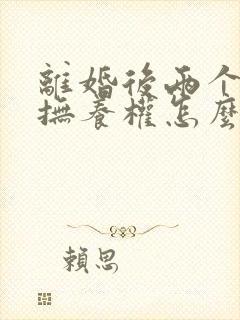 離婚後兩个
撫養權怎麼
賴思